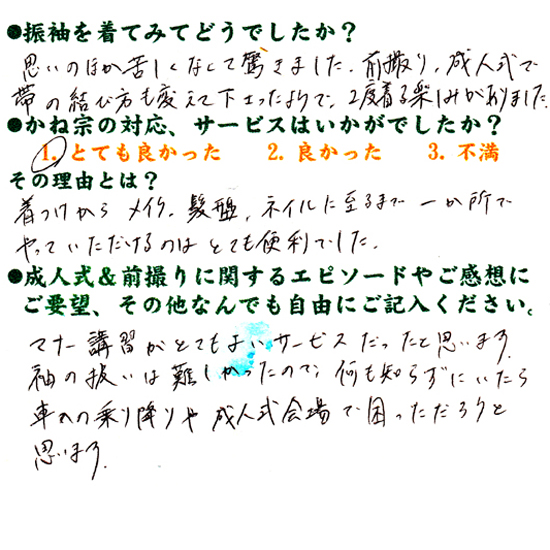 ●振袖を着てみてどうでしたか？
思いのほか苦しくなくて驚きました。前撮り、成人式で
帯の結び方も変えて下さったようで、2度着る楽しみがありました。
●かね宗の対応、サービスはいかがでしたか？
1. とても良かった　2. 良かった　3. 不満
その理由とは？
着つけから メイク、髪型、ネイルに至るまで 一か所で
やっていただけるのは とても便利でした。
●成人式＆前撮りに関するエピソードやご感想に
ご要望、その他なんでも自由にご記入ください。
マナー講習がとてもよいサービスだったと思います。
袖の扱いは難しかったので、何も知らずにいたら
車への乗り降りや 成人式会場で困っただろうと
思います。